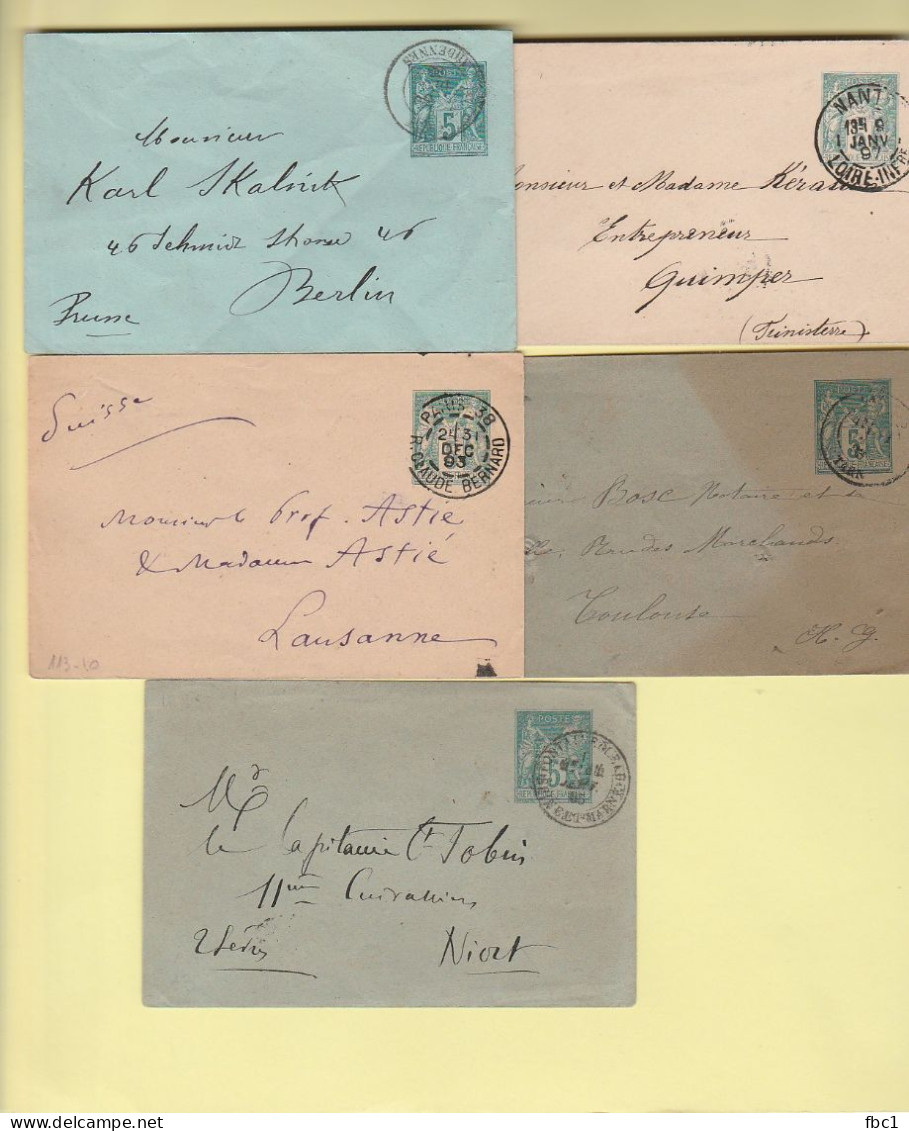 POSTE
5
REPUBLIQUE FRANÇAISE
Monsieur
Karl Skalnik
46 Schmidt Strasse 46
Berlin
Prusse
NANT
1 JANV
97
LOIRE-INFRE
Monsieur et Madame
Entrepreneur
Quimper
(Finisterre)
Suisse
PARIS 38
31
DEC
93
R. CLAUDE BERNARD
Monsieur le Prof. Astié
& Madame Astié
Lausanne
113-10
5
TARN
Bosc Notaire et
Rue des Marchands.
Toulouse
H. G.
POSTE
5
SEINE-ET-MARNE
Mr
le Capitaine Ct Tobin
11me Cuirassiers
Niort
2 Sèvres
fbc1